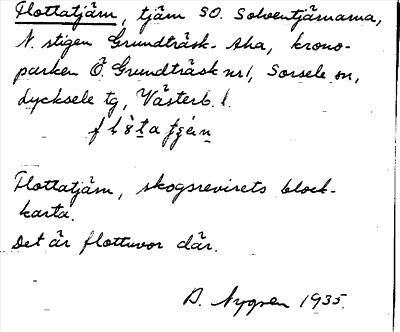 Flottatjärn, tjärn SO. Solventjärnarna,
N. stigen Grundträsk-Aha, krono-
parken Ö. Grundträsk nr 1, Sorsele sn,
Lycksele tg, Västerb. l.
Flottatjärn, skogsrevirets block-
karta.
Det är flottuvor där.
D. Nygren 1935.